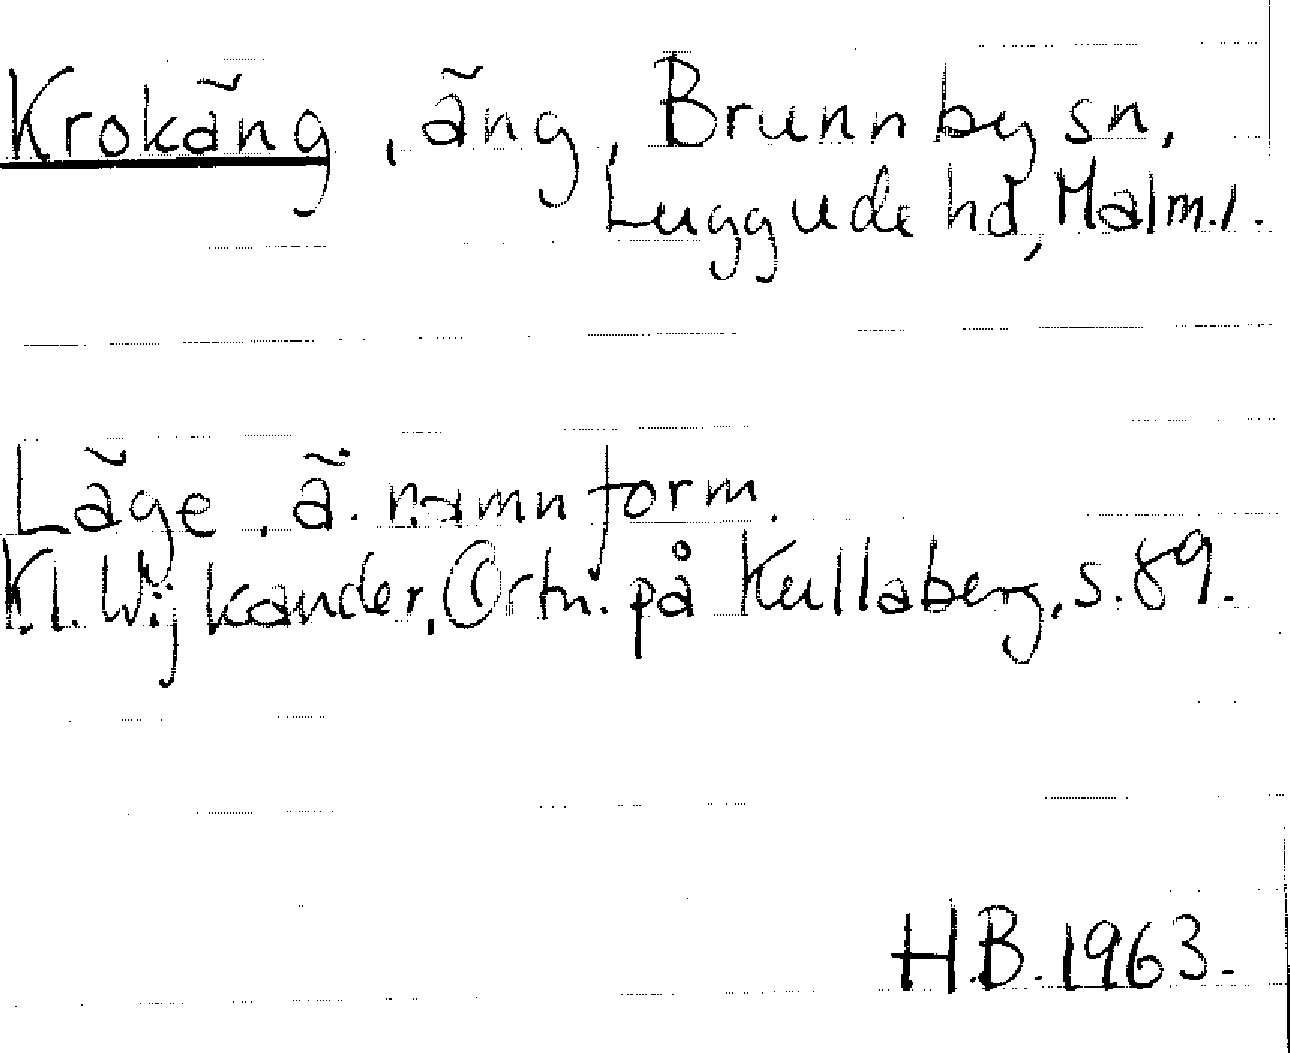 Krokäng, äng, Brunnby sn,
Luggude hd, Malm. l.
Läge, ä. namnform.
K. I. Wijkander, Ortn. på Kullaberg, s. 89.
H.B. 1963.